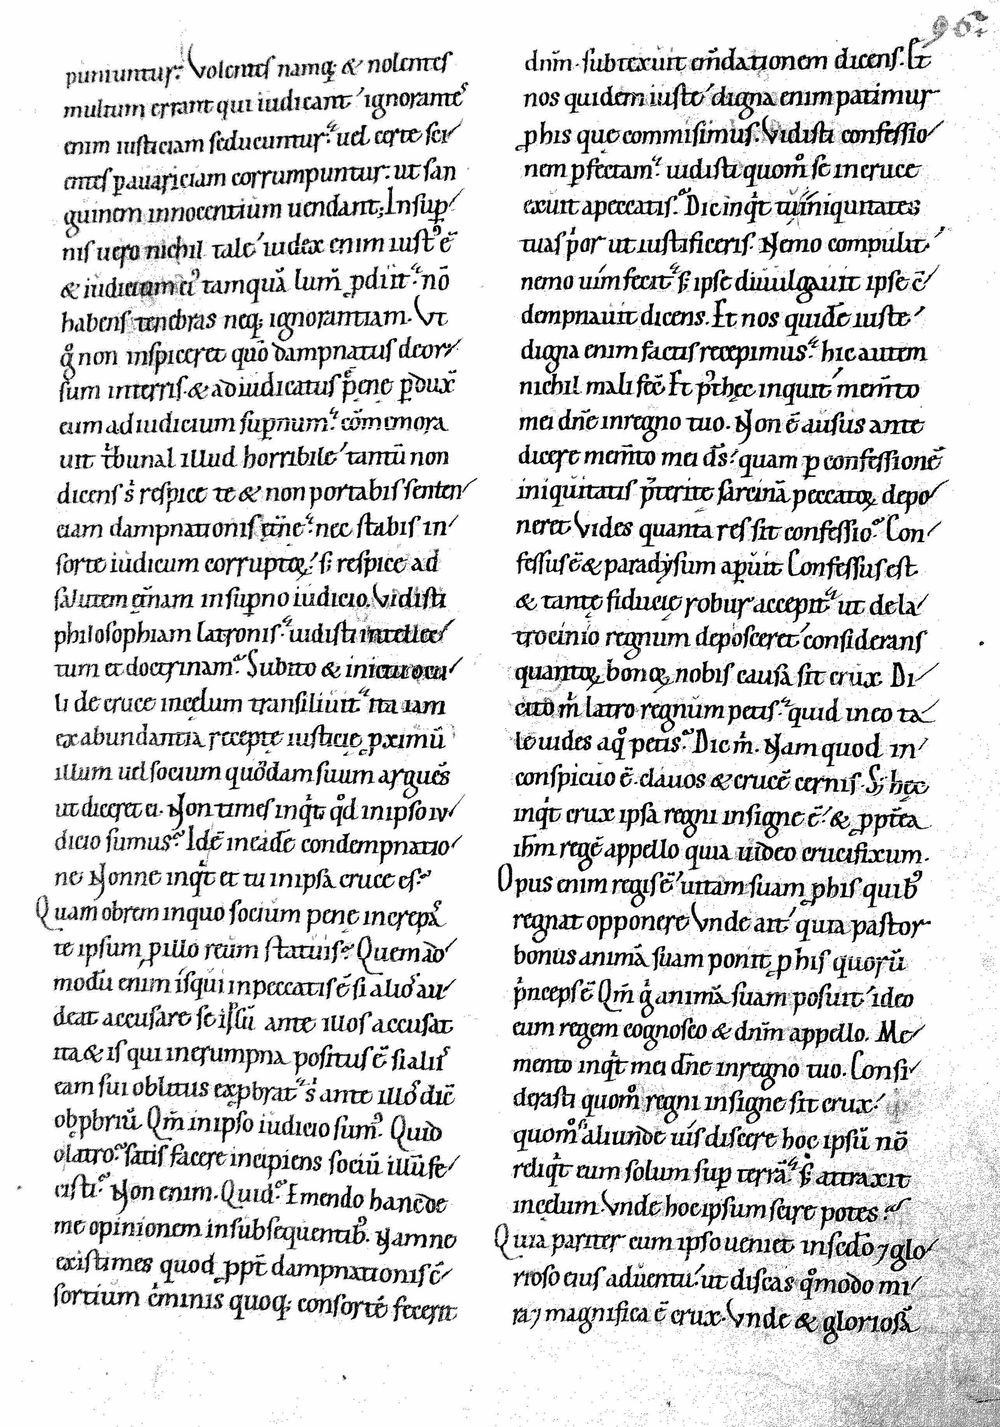 96
puniuntur. Volentes namq; & nolentes
multum errant qui iudicant ignorantes
enim iusticiam seducuntur. uel certe sci
entes p auariciam corrumpuntur. ut san
guinem innocentium uendant. In sup
nis uero nichil tale iudex enim iust' ē
& iudicium ei' tamquā lum̄ pdiit. nō
habens tenebras neq; ignorantiam. Ut
g° non inspiceret quō dampnatus deor
sum in terris. & adiudicatus pene pdux̄
eum ad iudicium supnum. cōmemora
uit tbunal illud horribile tantū non
dicens s; respice te & non portabis senten
ciam dampnationis et̄ne. nec stabis in
sorte iudicum corruptoꝝ. s; respice ad
salutem et̄nam in supno iudicio. Vidisti
philosophiam latronis. uidisti intellec
tum et doctrinam. Subito & in ictu ocu
li de cruce in cęlum transiliuit. ita iam
ex abundantia recepte iusticię pximū
illum uel socium quōdam suum arguēs
ut diceret ei. Non times inqt qd in ipso iu
dicio sumus. Idē in eadē condempnatio
ne Nonne inqt et tu in ipsa cruce es.
Quam obrem in quo socium pene increpas
te ipsum p illo reum statuis. Quemad
modū enim is qui in peccatis ē si alios au
deat accusare se ipsū ante illos accusat
ita & is qui in erumpna positus ē si alis
eam sui oblitus exprobrat. s; ante illos dic̄
obpbriū. Qm̄ in ipso iudicio sum'. Quid
o latro. satis facere incipiens sociū illū fe
cisti. Non enim. Quid. Emendo hanc de
me opinionem in subsequentib'. Nam ne
existimes quod ppt dampnationis
sortium c̄minis quoq; consortē fecerit
dn̄m. subtexuit em̄dationem dicens. Et
nos quidem iuste digna enim patimur
p his que commisimus. Vidisti confessio
nem pfectam. uidisti quom° se in cruce
exuit a peccatis. Dic inqt tu iniquitates
tuas por ut iustificeris. Nemo compulit
nemo uim fecit. s; ipse diuulgauit ipse ē
dempnauit dicens. Et nos quidē iuste
digna enim factis recepimus. hic autem
nichil mali fec̄ Et p' hec inquit mem̄to
mei dn̄e in regno tuo. Non ē ausus ante
dicere mem̄to mei ds̄. quam p confessionē
iniquitatis pterite sarcinā peccatoꝝ depo
neret Vides quanta res sit confessio. Con
fessus ē & paradysum apuit Confessus est
& tantę fiducię robur accepit. ut de la
trocinio regnum deposceret considerans
quantoꝝ bonoꝝ nobis causa sit crux. Di
cito m latro regnum petis. quid in eo ta
le uides a quo petis. Dic m. Nam quod in
conspicuo ē. clauos & crucē cernis. S; hęc
inqt crux ipsa regni insigne ē. & pptea
ihm regē appello quia uideo crucifixum.
Opus enim regis ē uitam suam p his quib'
regnat opponere Unde ait quia pastor
bonus animā suam ponit p his quorū
pnceps ē Qm̄ g° animā suam posuit ideo
eum regem cognosco & dn̄m appello. Me
mento inqt mei dn̄e in regno tuo. Consi
derasti quom° regni insigne sit crux.
quom° aliunde uis discere hoc ipsū nō
reliqt eum solum sup terrā. s; attraxit
in cęlum Unde hoc ipsum scire potes.
Quia pariter cum ipso ueniet in scdo ⁊ glo
rioso eius aduentu. ut discas qomodo mi
ra ⁊ magnifica ē crux. Unde & gloriosā